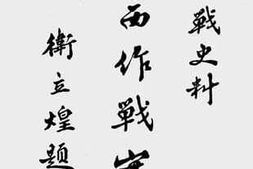 戰史料
西作戰
衛立煌題